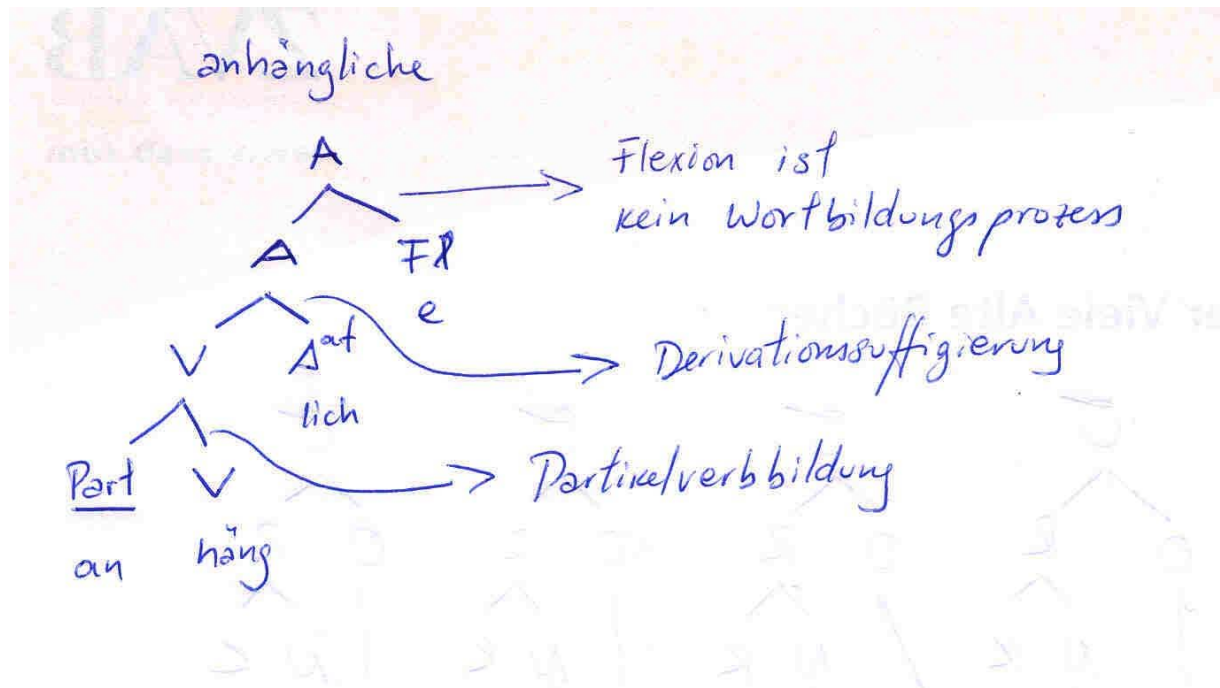 anhängliche
A
Flexion ist
kein Wortbildungsprozess
A Fl
e
V A^af
lich
Derivationssuffigierung
Part V
Partikelverbbildung
an häng